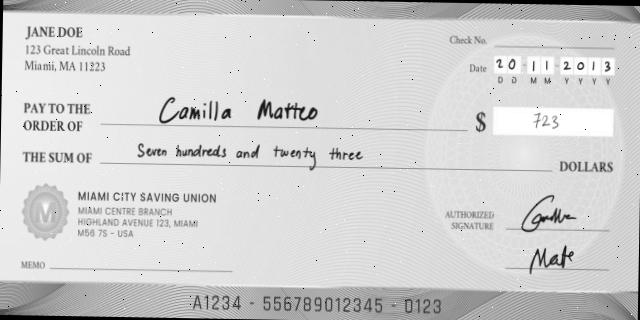 JANE DOE
123 Great Lincoln Road
Miami, MA 11223
Check No.
Date 20 - 11 - 2013
D D M M Y Y Y Y
PAY TO THE
ORDER OF Camilla Matteo
$ 723
THE SUM OF Seven hundreds and twenty three DOLLARS
MIAMI CITY SAVING UNION
MIAMI CENTRE BRANCH
HIGHLAND AVENUE 123, MIAMI
M56 7S - USA
M
AUTHORIZED
SIGNATURE
MEMO
A1234 - 556789012345 - 0123